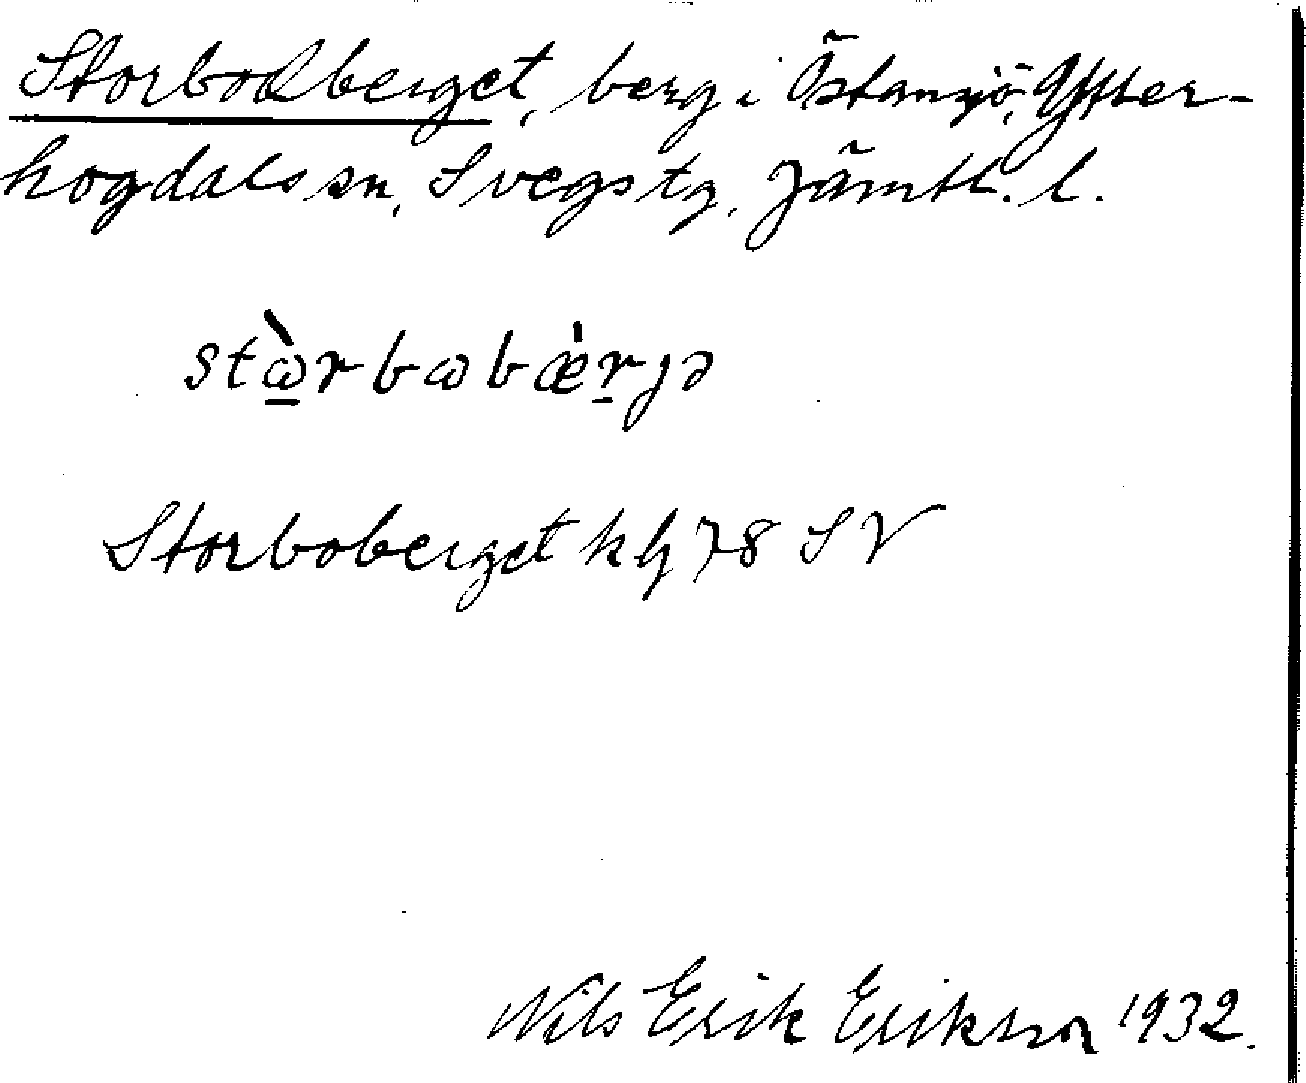 Storbodberget, berg i Östansjö, Ytter-
hogdals sn, Svegs tg, Jämtl. l.
stὼ̱rbωbæ̀ṟȷə
Storboberget kbl 78 SV
Nils Erik Erikson 1932.